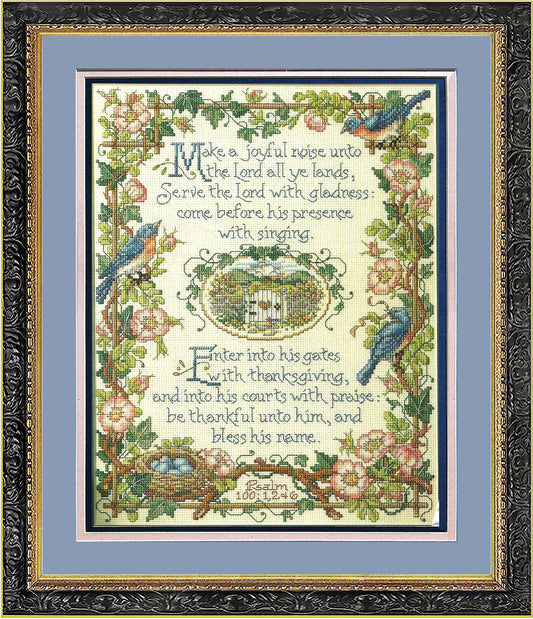 Make a joyful noise unto
the Lord all ye lands,
Serve the Lord with gladness:
come before his presence
with singing.
Enter into his gates
with thanksgiving,
and into his courts with praise:
be thankful unto him, and
bless his name.
Psalm
100:1,2&6